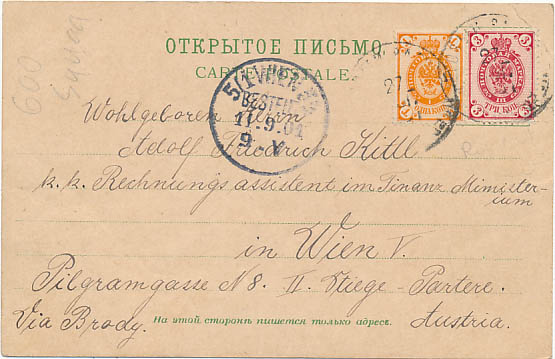 ОТКРЫТОЕ ПИСЬМО.
CARTE POSTALE.
5/1 WIEN
BESTELLT
11.9.04
9-V
27
600
Wohlgeboren Herrn
Adolf Friedrich Kittl
k.k. Rechnungsassistent im Finanz Ministe-
rium
in Wien V.
Pilgramgasse N 8. II. Stiege - Partere.
Via Brody.
На этой сторонѣ пишется только адресъ.
Austria.